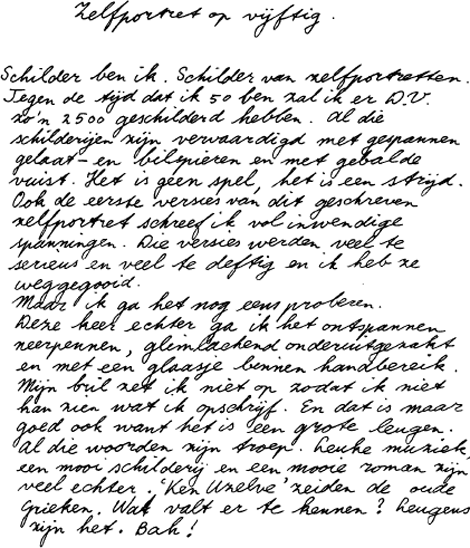 Zelfportret op vijftig.
Schilder ben ik. Schilder van zelfportretten.
Tegen de tijd dat ik 50 ben zal ik er D.V.
zo'n 2500 geschilderd hebben. Al die
schilderijen zijn vervaardigd met gespannen
gelaat- en bilspieren en met gebalde
vuist. Het is geen spel, het is een strijd.
Ook de eerste versies van dit geschreven
zelfportret schreef ik vol inwendige
spanningen. Die versies werden veel te
serieus en veel te deftig en ik heb ze
weggegooid.
Maar ik ga het nog eens proberen.
Deze keer echter ga ik het ontspannen
neerpennen, glimlachend onderuitgezakt
en met een glaasje binnen handbereik.
Mijn bril zet ik niet op zodat ik niet
kan zien wat ik opschrijf. En dat is maar
goed ook want het is een grote leugen.
Al die woorden zijn troep. Leuke muziek,
een mooi schilderij en een mooie roman zijn
veel echter. 'Ken Uzelve' zeiden de oude
Grieken. Wat valt er te kennen? Leugens
zijn het. Bah!